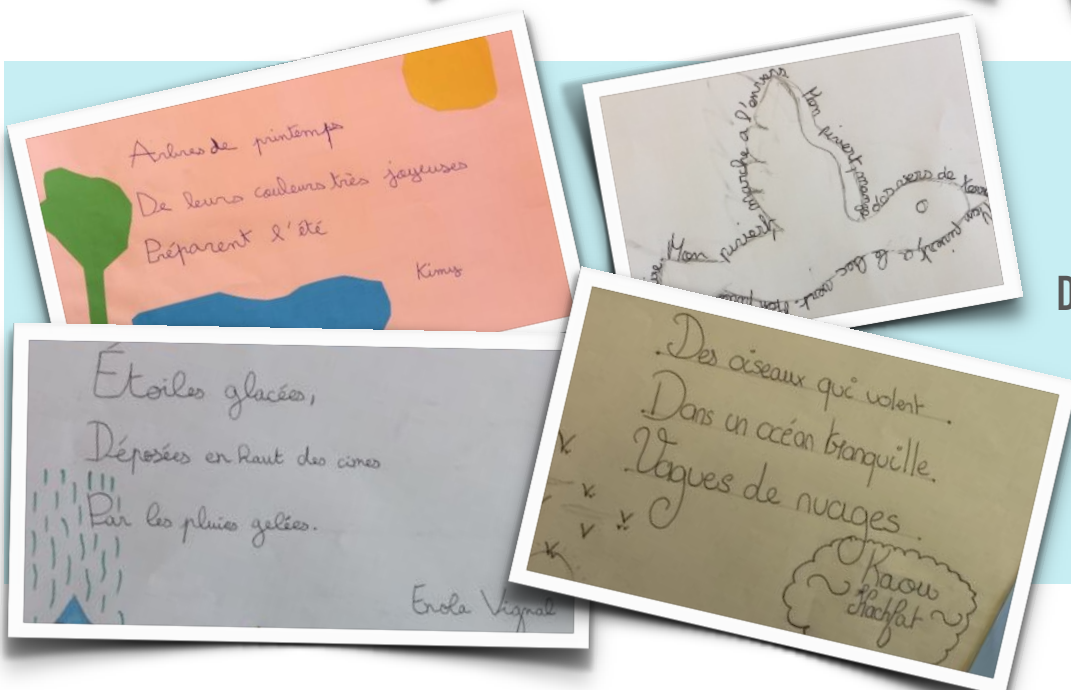 Arbres de printemps
De leurs couleurs très joyeuses
Préparent l'été
Kimy
Mon pivert marche a l'envers
Mon pivert, mange des vers de
Mon pivert a le bec vert.
Étoiles glacées,
Déposées en haut des cimes
Par les pluies gelées.
Enola Vignal
Des oiseaux qui volent.
Dans un océan tranquille.
Vagues de nuages.
Kaou
D